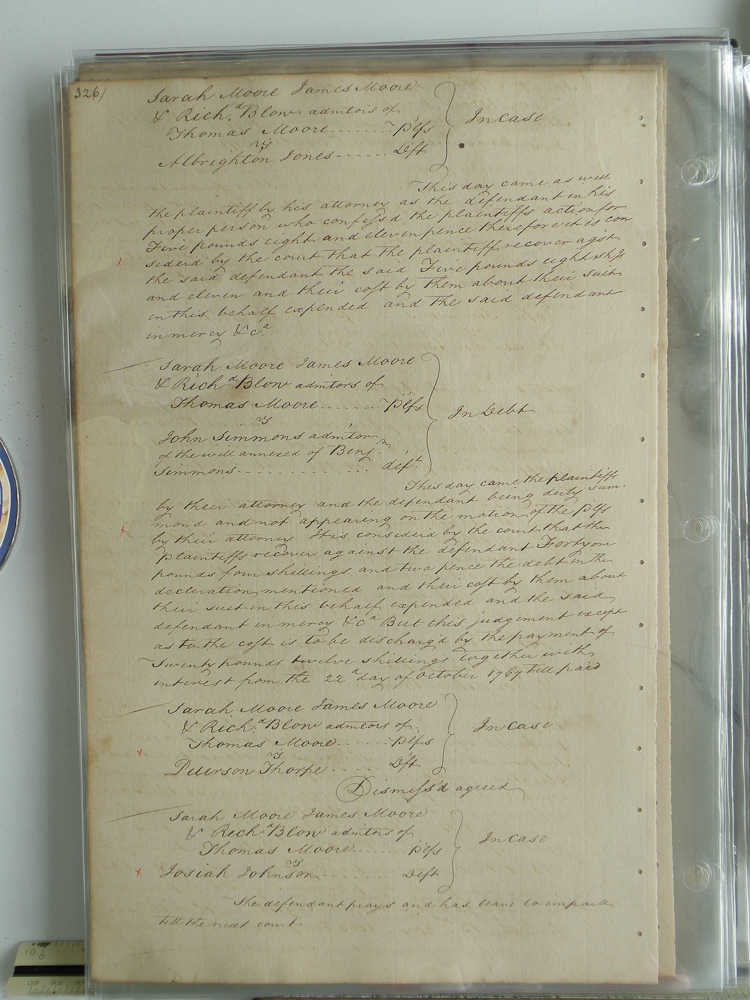 326/
Sarah Moore James Moore
& Rich.d Blow admtors of
Thomas Moore........Plfs
vs
Albrighton Jones......Deft
In Case
This day came as well
the plaintiff by his attorney as the defendant in his
proper person who confessd the plaintiffs action for
Five pounds eight and eleven pence therefore it is con
siderd by the court that the plaintiff recover agst
the said defendant the said Five pounds eight shgs
and eleven and their cost by them about their suit
in this behalf expended and the said defendant
in mercy &ca
Sarah Moore James Moore
& Richd Blow admtors of
Thomas Moore........Plfs
vs
John Simmons admtor
of the will annexed of Benjn
Simmons............deft
In Debt
This day came the plaintiffs
by their attorney and the defendant being duly sum-
mond and not appearing on the motion of the Plfs
by their attorney It is considerd by the court that the
plaintiffs recover against the defendant Forty one
pounds four shillings and two pence the debt in the
decleration mentioned and their cost by them about
their suit in this behalf expended and the said
defendant in mercy &ca But this judgement except
as to the cost is to be discharg'd by the payment of
Twenty pounds twelve shillings together with
interest from the 22d day of October 1767 till paid
Sarah Moore James Moore
& Rich.d Blow admtors of
Thomas Moore........Plfs
vs
Peterson Thorpe......Deft
In Case
Dismiss'd agreed
Sarah Moore James Moore
& Richd Blow admtors of
Thomas Moore........Plfs
vs
Josiah Johnson.......Deft
In Case
The defendant prays and has leave to imparle
till the next court